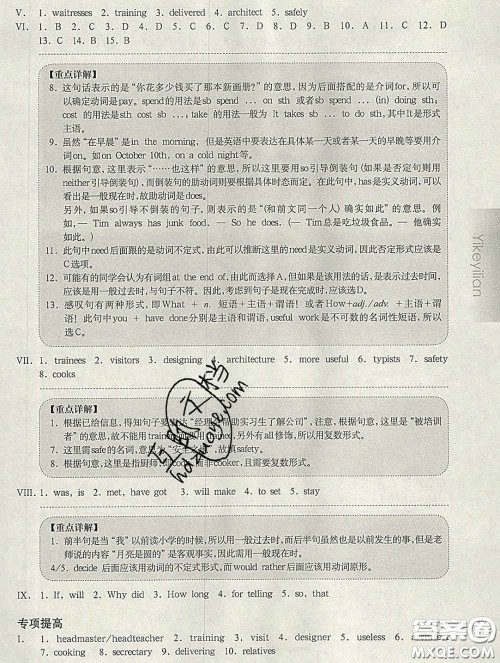 V. 1. waitresses 2. training 3. delivered 4. architect 5. safely
VI. 1. B 2. B 3. A 4. D 5. C 6. D 7. D 8. C 9. D 10. C 11. C 12. D
13. C 14. B 15. B
【重点详解】
8. 这句话表示的是“你花多少钱买了那本新画册?”的意思,因为后面搭配的是介词for,所以可
以确定动词是pay。spend的用法是sb spend ... on sth 或者sb spend ... (in) doing sth;
cost 的用法是sth cost sb ...;take 的用法一般为 It takes sb ... to do sth,其中It是形式
主语。
9. 虽然“在早晨”是in the morning,但是英语中要表在具体某一天或者某一天的早晚等要用介
词on。如on October 10th, on a cold night等。
10. 根据句意,这里表示“……也这样”的意思,所以这里要用so引导倒装句(如果是否定句则用
neither引导倒装句),而倒装句的助动词则要根据具体时态而定。在此句中,has是实义动词,可以
看出是一般现在时,故助动词是does。
另外,如果so引导不倒装的句子,则表示的是“(和前文同一个人)确实如此”的意思。例
如,— Tim always has junk food. — So he does. (— Tim总是吃垃圾食品。— 他确实
如此。)
11. 此句中need后面跟的是动词不定式,由此可以推断这里的need是实义动词,因此否定形式应该是
C选项。
12. 可能有的同学会认为有词组at the end of,由此而选择A,但如果该用法的话,是表示过去时间,
应该是用一般过去时,与句子不符。因此,可考虑到是现在完成时,故选D。
13. 感叹句有两种形式,即What + n. 短语+主语+谓语!或者How+adj./adv. +主语+谓
语!此句中you + have done分别是主语和谓语,useful work是不可数的名词性短语,所
以选C。
Yikeyilian
VII. 1. trainees 2. visitors 3. designing 4. architecture 5. more useful 6. typists 7. safety
8. cooks
【重点详解】
1. 根据已给信息,得知句子要表达“经理帮助实习生了解公司”,注意这里是“被培训
者”的意思,故不能用trainer而要用trainee,另外有all修饰,所以要用复数。
7. 这里需safe的名词,意思是“安全之旅”,故填safety。
8. 根据句意,这里是指厨师,即cook,而非cooker,且需要复数形式。
VIII. 1. was, is 2. met, have got 3. will make 4. to set 5. stay
【重点详解】
1. 前半句是当“我”以前读小学的时候,所以用一般过去时;而后半句虽然也是以前发生的事,但是老
师说的内容“月亮是圆的”是客观事实,因此需用一般现在时。
4/5. decide 后面应该用动词的不定式形式,而would rather后面应该用动词原形。
IX. 1. If, will 2. Why did 3. How long 4. for telling 5. so, that
专项提高
I. 1. headmaster/headteacher 2. training 3. visit 4. designer 5. useless
7. cooking 8. secrectary 9. delivering 10. relatives
答案圈
MXQE.COM